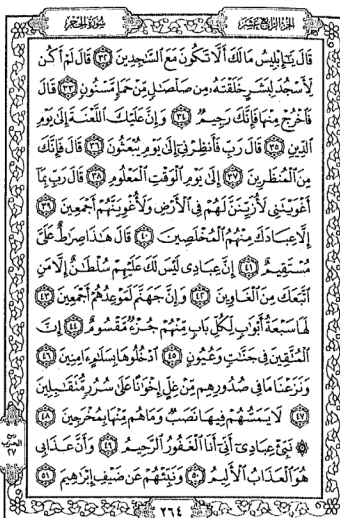 الجزء الرابع عشر
سورة الحجر
قَالَ يَٰٓإِبْلِيسُ مَا لَكَ أَلَّا تَكُونَ مَعَ ٱلسَّٰجِدِينَ ٣٢ قَالَ لَمْ أَكُن
لِّأَسْجُدَ لِبَشَرٍ خَلَقْتَهُۥ مِن صَلْصَٰلٍ مِّنْ حَمَإٍ مَّسْنُونٍ ٣٣ قَالَ
فَٱخْرُجْ مِنْهَا فَإِنَّكَ رَجِيمٌ ٣٤ وَإِنَّ عَلَيْكَ ٱللَّعْنَةَ إِلَىٰ يَوْمِ
ٱلدِّينِ ٣٥ قَالَ رَبِّ فَأَنظِرْنِىٓ إِلَىٰ يَوْمِ يُبْعَثُونَ ٣٦ قَالَ فَإِنَّكَ
مِنَ ٱلْمُنظَرِينَ ٣٧ إِلَىٰ يَوْمِ ٱلْوَقْتِ ٱلْمَعْلُومِ ٣٨ قَالَ رَبِّ بِمَآ
أَغْوَيْتَنِى لَأُزَيِّنَنَّ لَهُمْ فِى ٱلْأَرْضِ وَلَأُغْوِيَنَّهُمْ أَجْمَعِينَ ٣٩
إِلَّا عِبَادَكَ مِنْهُمُ ٱلْمُخْلَصِينَ ٤٠ قَالَ هَٰذَا صِرَٰطٌ عَلَىَّ
مُسْتَقِيمٌ ٤١ إِنَّ عِبَادِى لَيْسَ لَكَ عَلَيْهِمْ سُلْطَٰنٌ إِلَّا مَنِ
ٱتَّبَعَكَ مِنَ ٱلْغَاوِينَ ٤٢ وَإِنَّ جَهَنَّمَ لَمَوْعِدُهُمْ أَجْمَعِينَ ٤٣
لَهَا سَبْعَةُ أَبْوَٰبٍ لِّكُلِّ بَابٍ مِّنْهُمْ جُزْءٌ مَّقْسُومٌ ٤٤ إِنَّ
ٱلْمُتَّقِينَ فِى جَنَّٰتٍ وَعُيُونٍ ٤٥ ٱدْخُلُوهَا بِسَلَٰمٍ ءَامِنِينَ ٤٦
وَنَزَعْنَا مَا فِى صُدُورِهِم مِّنْ غِلٍّ إِخْوَٰنًا عَلَىٰ سُرُرٍ مُّتَقَٰبِلِينَ
٤٧ لَا يَمَسُّهُمْ فِيهَا نَصَبٌ وَمَا هُم مِّنْهَا بِمُخْرَجِينَ ٤٨
۞ نَبِّئْ عِبَادِىٓ أَنِّىٓ أَنَا ٱلْغَفُورُ ٱلرَّحِيمُ ٤٩ وَأَنَّ عَذَابِى
هُوَ ٱلْعَذَابُ ٱلْأَلِيمُ ٥٠ وَنَبِّئْهُمْ عَن ضَيْفِ إِبْرَٰهِيمَ ٥١
الحزب
٢٧
٢٦٤